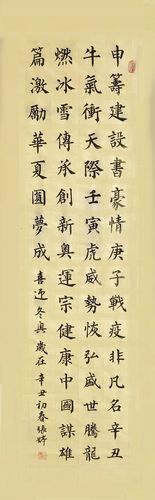 申籌建設書豪情庚子戰疫非凡名辛丑
牛氣衝天際壬寅虎威勢恢弘盛世騰龍
燃冰雪傳承創新奧運宗健康中國謀雄
篇激勵華夏圓夢成
喜迎冬奧歲在辛丑初春張妤